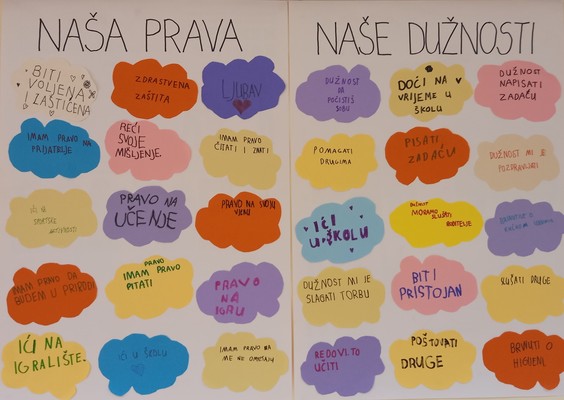 NAŠA PRAVA
BITI
VOLJENA
I ZAŠTIĆENA
ZDRASTVENA
ZAŠTITA
LJUBAV
IMAM PRAVO NA
PRIJATELJE
REĆI
SVOJE
MIŠLJENJE.
IMAM PRAVO
ČITATI I ZNATI
IĆI U
PRAVO NA
UČENJE
PRAVO NA SVOJU
IMAM PRAVO DA
BUDEM U PRIRODI
PRAVO
IMAM PRAVO
PITATI
PRAVO
NA
IGRU
IĆI NA
IGRALIŠTE.
IĆI U ŠKOLU
IMAM PRAVO NA
ME NE OMETAJU
NAŠE DUŽNOSTI
DUŽNOST
POČISTIŠ
SOBU
DOĆI NA
VRIJEME U
ŠKOLU
DUŽNOST
NAPISATI
ZADAĆU
POMAGATI
DRUGIMA
PISATI
ZADAĆU
DUŽNOST MI JE
POZDRAVLJATI
IĆI
U ŠKOLU
DUŽNOST
MORAMO SLUŠATI
RODITELJE
DUŽNOST MI JE
SLAGATI TORBU
BITI
PRISTOJAN
SLUŠATI DRUGE
REDOVITO
UČITI
POŠTOVATI
DRUGE
BRINUTI O
HIGIJENI